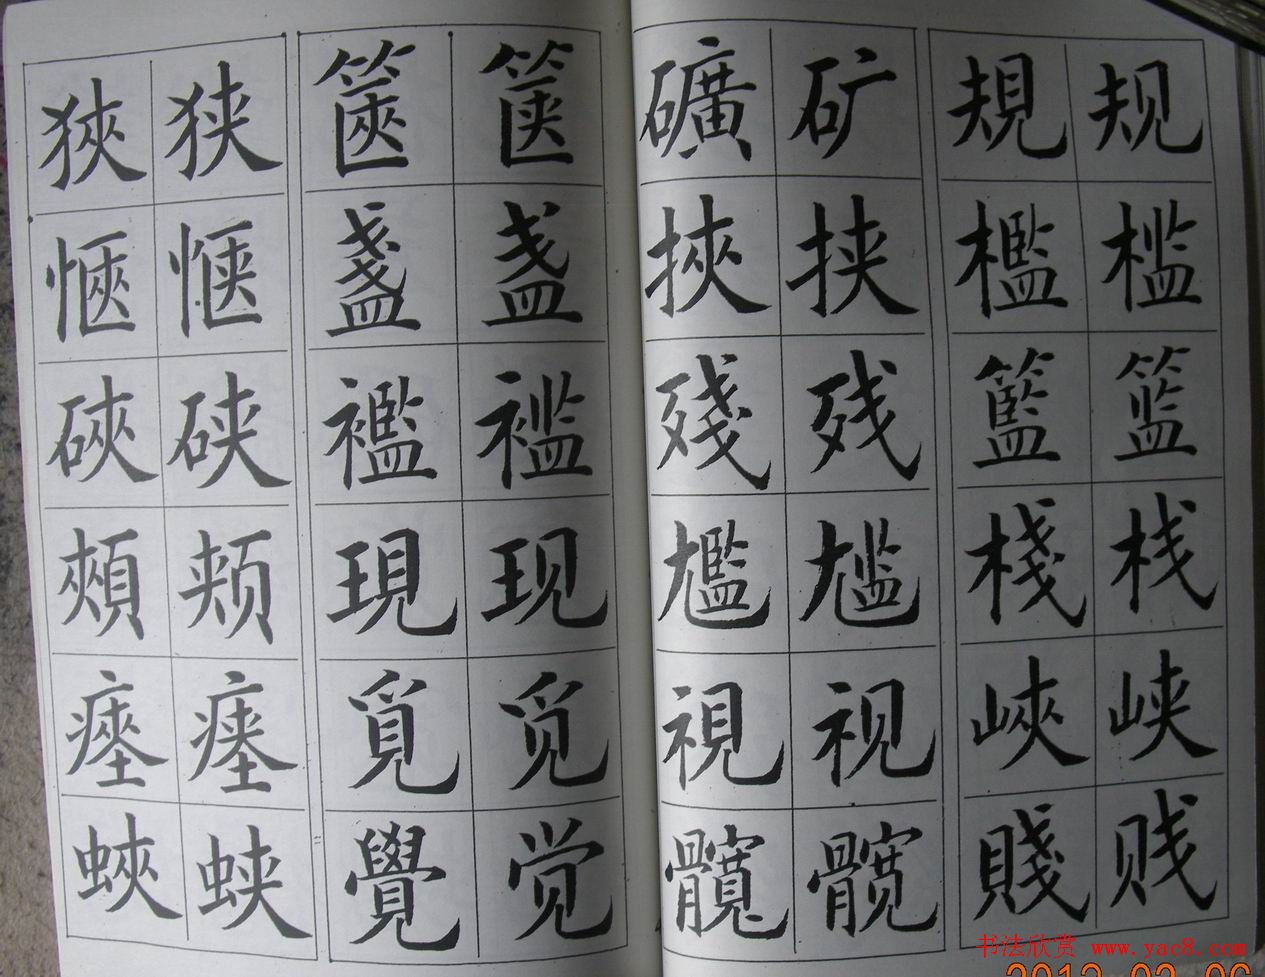 狹 狭 篋 箧 礦 矿 規 规
愜 惬 盞 盏 挾 挟 檻 槛
硤 硖 襤 褴 殘 残 籃 篮
頰 颊 現 现 尷 尴 棧 栈
瘞 瘗 覓 觅 視 视 峽 峡
蛺 蛱 覺 觉 髖 髋 賤 贱
书法欣赏 www.yac8.com